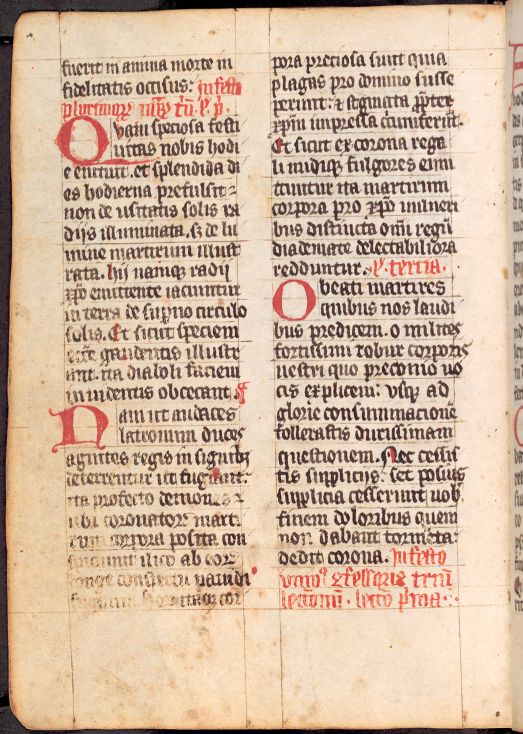 fuerit in anima morte in
fidelitatis occisus. In festo
plurimorum
O quam speciosa festi
uitas nobis hodi
e enituit. et splendida di
es hodierna prefulsit
non de usitatis solis ra
dijs illuminata. sꝫ de lu
mine martirum illust
rata. hij namqꝫ radij
xp̄o emittente iacuntur
in terra de sup̄no circulo
solis. Et sicut speciem
gaudentis illustr
ant. ita diaboli faciem
inuidentis obcecant.
Nam ut audaces
latronum duces
agnites regis in signibꝫ
deterrentur ut fugiant.
ita profecto demones
ubi coronatorꝝ mart
corpora posita con
ilico ab cor
pora preciosa sunt quia
plagas pro domino susce
perunt. & stigmata ꝓpter
xp̄m impressa
Et sicut ex corona rega
li undiqꝫ fulgores emi
ttuntur ita martirum
corpora pro xp̄o uulneri
bus distincta om̄i regū
diademate delectabiliora
redduntur. tertia.
O beati martires
quibus nos laudi
bus predicem. o milites
fortissimi robur corporis
uestri quo preconio uo
cis explicem. usqꝫ ad
glorie consummacionē
tollerastis durissimam
questionem. Nec cessis
tis supplicijs. set pocius
supplicia cesserunt uob̄.
finem doloribus quem
non dabant tormēta
dedit corona. In festo
lectionū. lectio p̄ma.